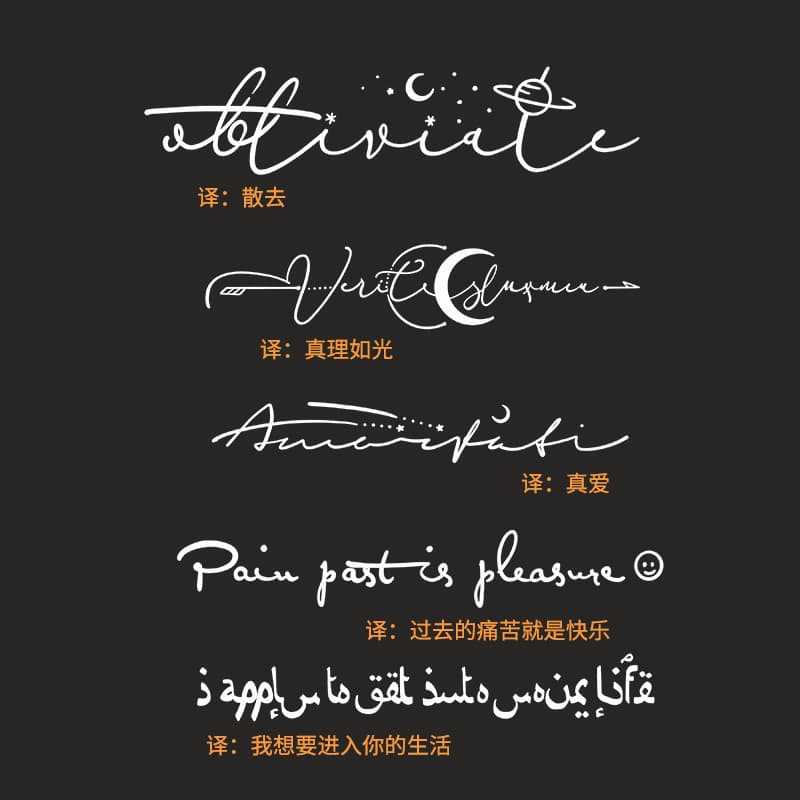 obliviate
译：散去
Verite sluxmeu
译：真理如光
Amor Fati
译：真爱
Pain past is pleasure
译：过去的痛苦就是快乐
i apply to get into your life
译：我想要进入你的生活